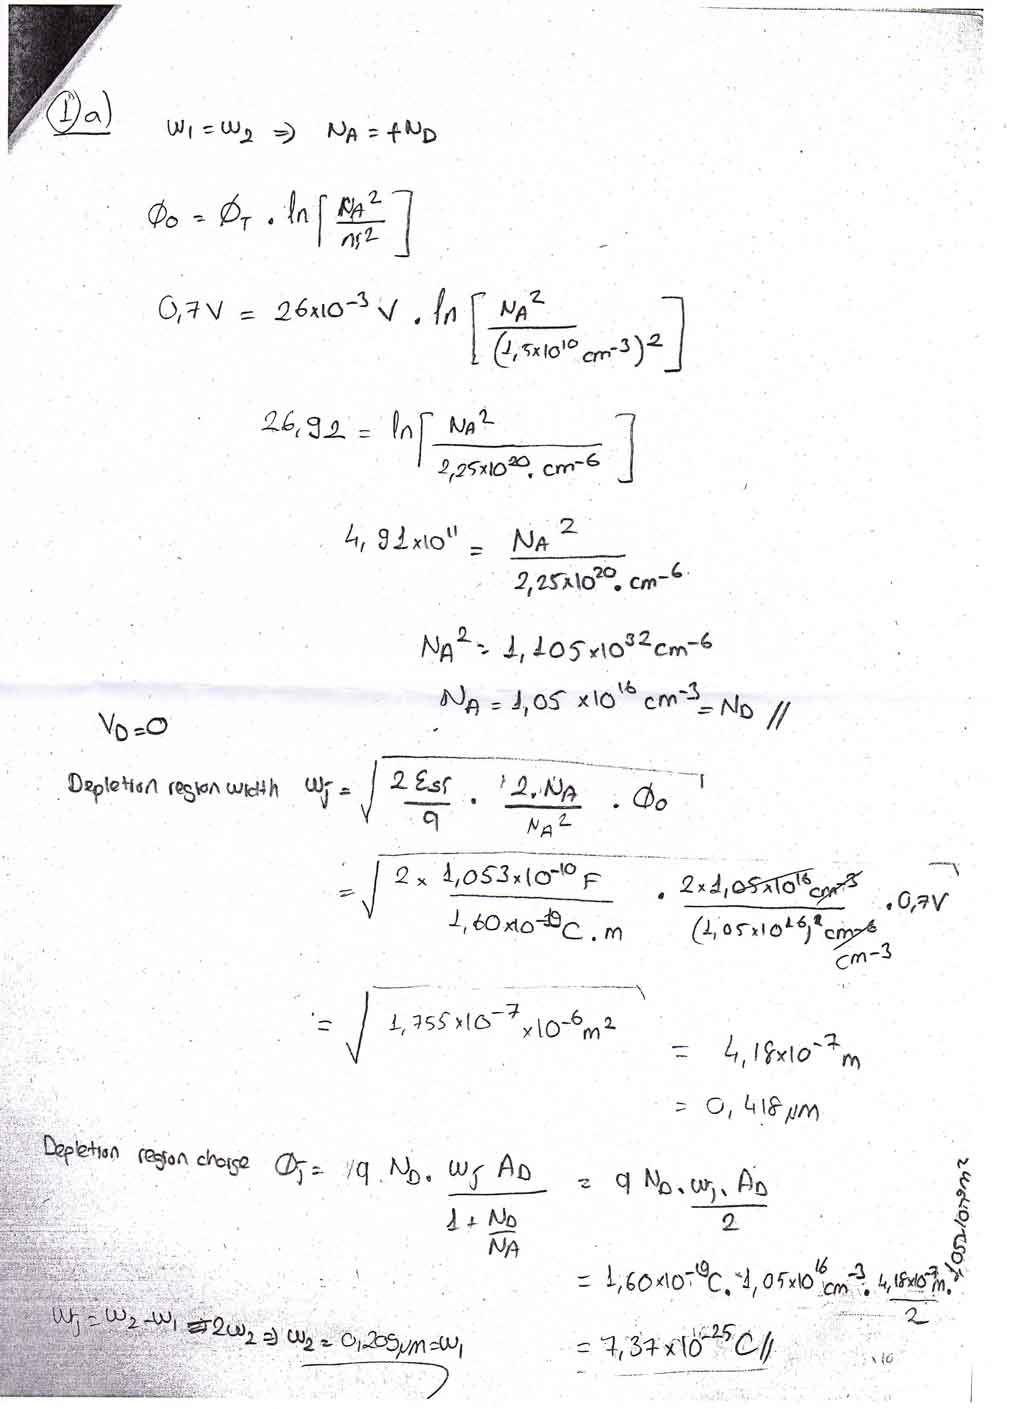 1) a)
W1 = W2 ⇒ NA = +ND
Ø0 = ØT . ln [ NA² / ni² ]
0,7V = 26x10⁻³ V . ln [ NA² / (1,5x10¹⁰ cm⁻³)² ]
26,92 = ln [ NA² / 2,25x10²⁰. cm⁻⁶ ]
4,91x10¹¹ = NA² / 2,25x10²⁰. cm⁻⁶
NA² = 1,105x10³² cm⁻⁶
NA = 1,05 x10¹⁶ cm⁻³ = ND //
VD=0
Depletion region width Wj = √( 2 Esi / q . 2.NA / NA² . Ø0 )
= √( 2 x 1,053x10⁻¹⁰ F / 1,60x10⁻¹⁹ C . m . 2x1,05x10¹⁶ cm⁻³ / (1,05x10¹⁶)² cm⁻⁶ cm⁻³ . 0,7V )
= √( 1,755x10⁻⁷ x10⁻⁶ m² ) = 4,18x10⁻⁷ m
= 0,418 μm
Depletion region charge Qj = q ND. Wj AD / 1 + ND / NA = q ND. Wj. AD / 2
= 1,60x10⁻¹⁹ C. 1,05x10¹⁶ cm⁻³. 4,18x10⁻⁷ m. / 2
Wj = W2 - W1 = 2W2 ⇒ W2 = 0,209μm = W1
= 7,37x10⁻²⁵ C //